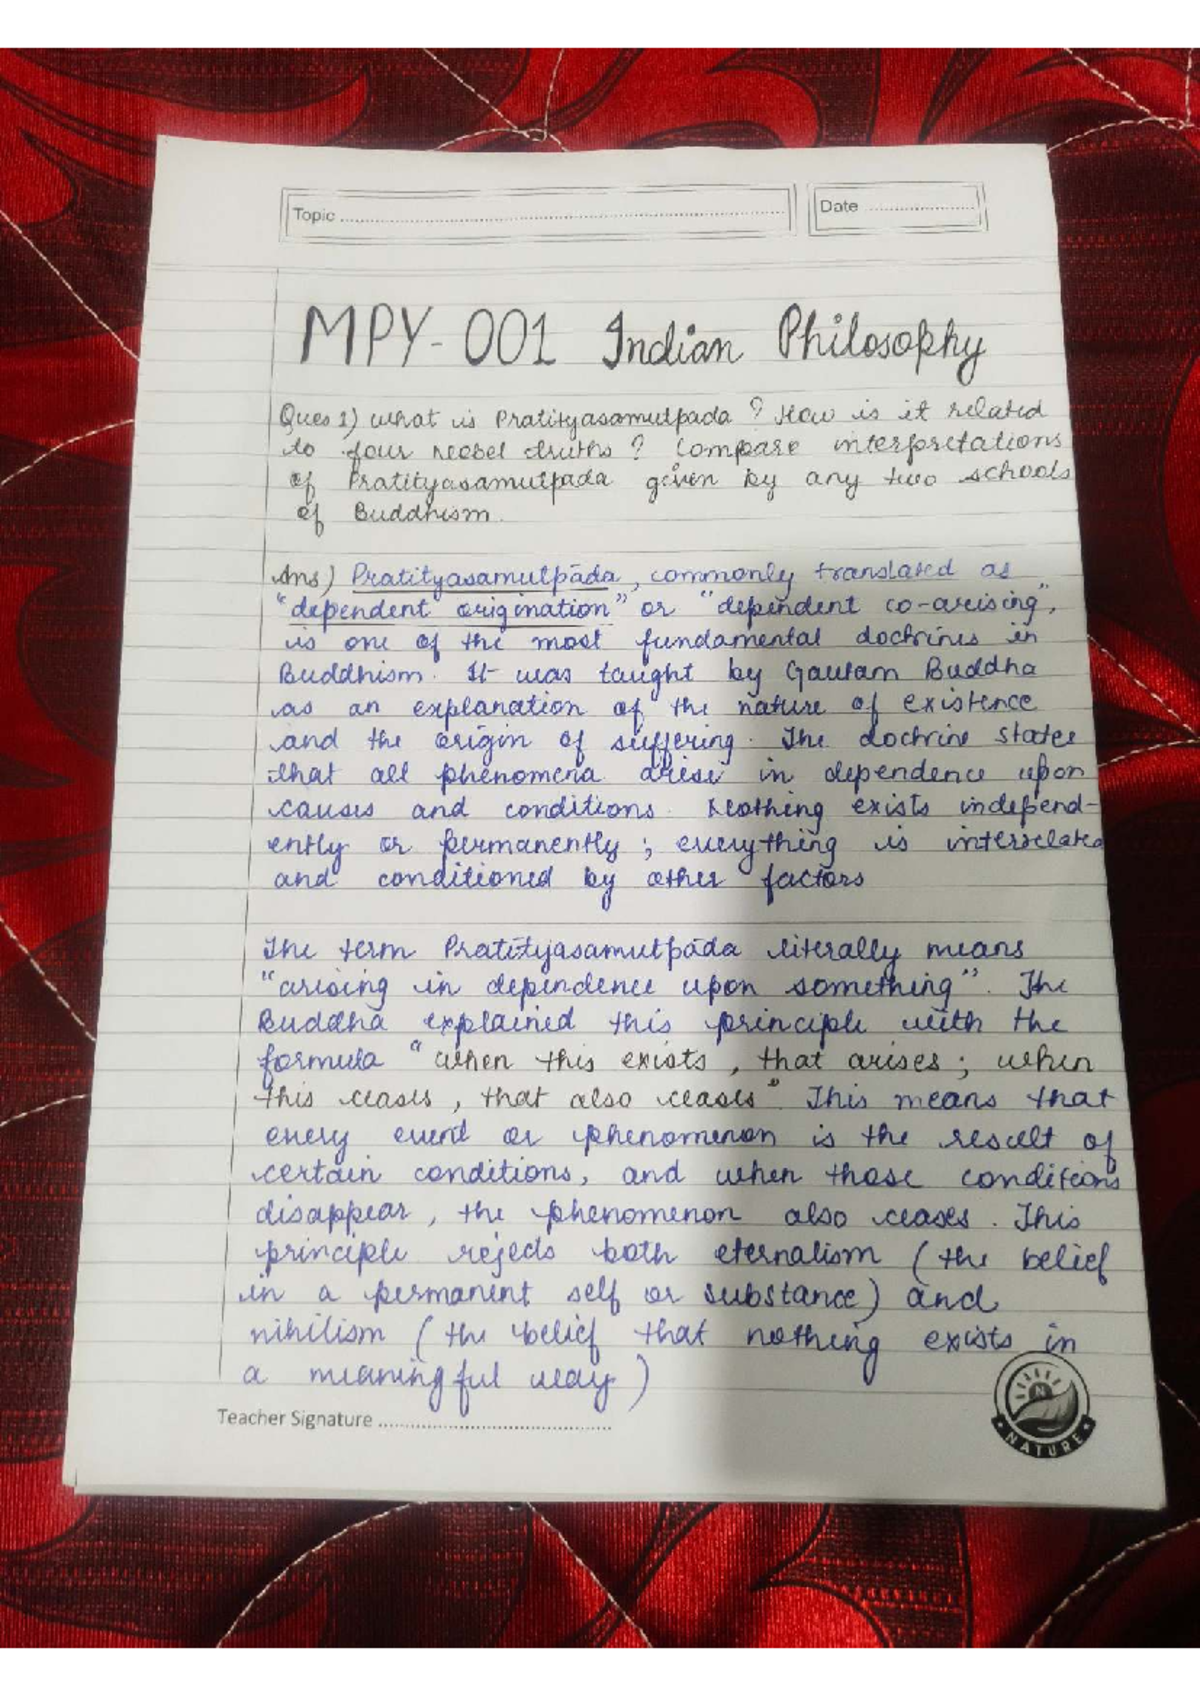 Topic
Date
MPY-001 Indian Philosophy
Ques 1) what is Pratityasamutpada ? How is it related
to four nobel truths ? Compare interpretations
of Pratityasamutpada given by any two schools
of Buddhism.
Ans) Pratityasamutpāda, commonly translated as
"dependent origination" or "dependent co-arising",
is one of the most fundamental doctrines in
Buddhism. It was taught by Gautam Buddha
as an explanation of the nature of existence
and the origin of suffering. The doctrine states
that all phenomena arise in dependence upon
causes and conditions. Nothing exists independ-
ently or permanently ; everything is interrelated
and conditioned by other factors
The term Pratityasamutpāda literally means
"arising in dependence upon something". The
Buddha explained this principle with the
formula "when this exists, that arises ; when
this ceases, that also ceases" This means that
every event or phenomenon is the result of
certain conditions, and when those conditions
disappear, the phenomenon also ceases. This
principle rejects both eternalism (the belief
in a permanent self or substance) and
nihilism (the belief that nothing exists in
a meaningful way)
Teacher Signature
NATURE